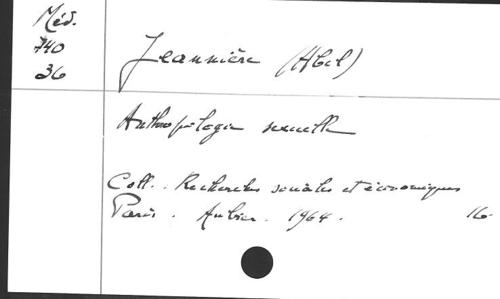 Méd.
740
36
Jeannière (Abel)
Anthropologie sexuelle
Coll. Recherches sociales et économiques
Paris. Aubier. 1964. 16